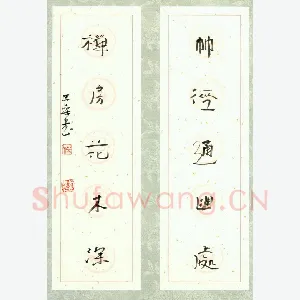 竹徑通幽處
禪房花木深
Shufawang.CN